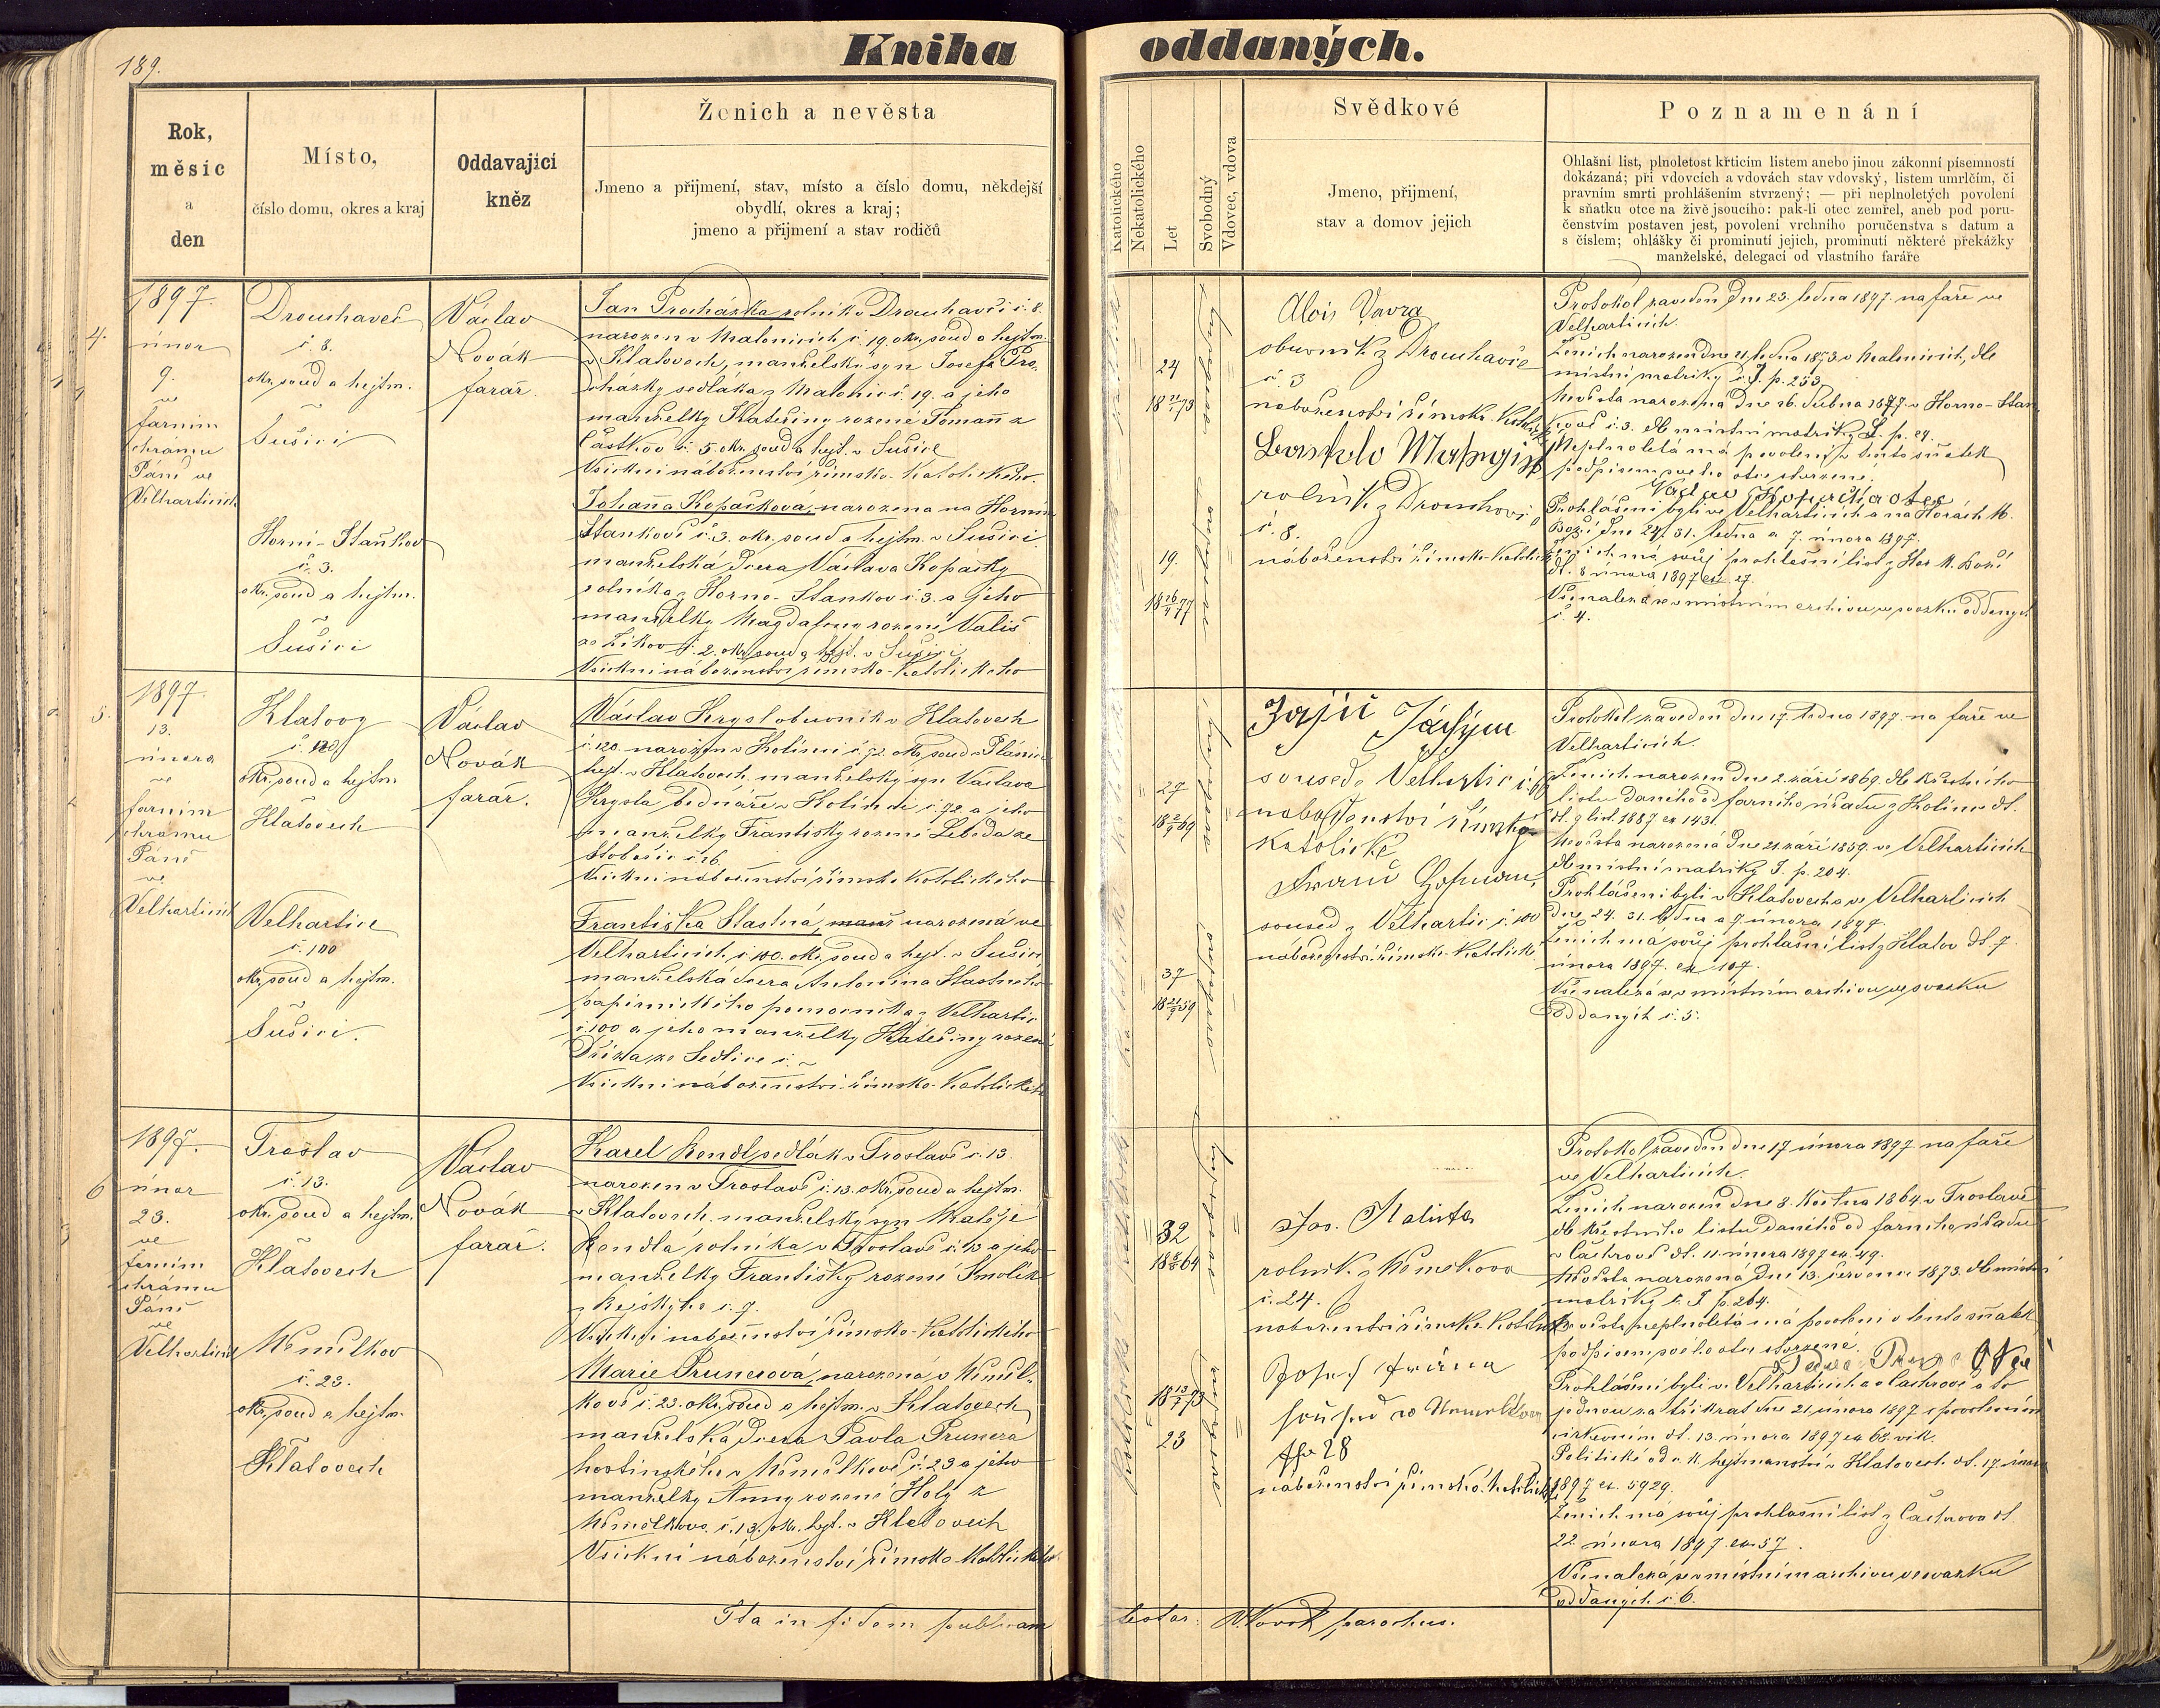 189.
Kniha oddaných.
Rok,
měsíc
a
den
Místo,
číslo domu, okres a kraj
Oddavající
kněz
Ženich a nevěsta
Jmeno a přijmení, stav, místo a číslo domu, někdejší
obydlí, okres a kraj;
jmeno a přijmení a stav rodičů
Katolického
Nekatolického
Let
Svobodný
Vdovec, vdova
Svědkové
Jmeno, přijmení,
stav a domov jejich
Poznamenání
Ohlašní list, plnoletost křticím listem anebo jinou zákonní písemností
dokázaná; při vdovcích a vdovách stav vdovský, listem umrlčím, či
pravním smrti prohlášením stvrzený; — při neplnoletých povolení
k sňatku otce na živě jsoucího: pak-li otec zemřel, aneb pod poru-
čenstvím postaven jest, povolení vrchního poručenstva s datum a
s číslem; ohlášky či prominutí jejich, prominutí některé překážky
manželské, delegací od vlastního faráře
4.
1897.
únor
9.
ve
farním
chrámu
Páně ve
Velharticích
Drouhaveč
č. 8.
okr. soud a hejtm.
v
Sušici
Horní-Staňkov
č. 3.
okr. soud a hejtm.
v
Sušici
Václav
Novák
farář.
Jan Procházka rolník v Drouhavči č. 8.
narozen v Malonicích č. 19. okr. soud a hejtm.
v Klatovech, manželský syn Josefa Pro-
cházky sedláka z Malonic č. 19. a jeho
manželky Kateřiny rozené Tomann z
Částkov č. 5. okr. soud a hejt. v Sušice
Všickni náboženství římsko-katolického.
Johanna Kopačková, narozena na Horním
Stankově č. 3. okr. soud a hejtm. v Sušici
manželská dcera Václava Kopačky
rolníka z Horno-Stankov č. 3. a jeho
manželky Magdaleny rozené Vališ
ze Žikov č. 2. okr. soud a hejt. v Sušici
Všickni náboženství římsko-katolického
24
18 21/1 73
19.
18 26/4 77
Alois Vavra
obuvník z Drouhavče
č. 3
náboženství římsko-katolick
rolník z Drouhavi
č. 8.
náboženství římsko-katolick
Protokol zaveden dne 23. ledna 1897. na faře ve
Velharticích.
Ženich narozen dne 21. ledna 1873 v Malonicích, dle
místní matriky č. I. p. 253
Nevěsta narozena dne 26. dubna 1877. v Horno-Stan
kově č. 3. dle místní matriky L. p. 29.
Neplnoletá má povolení k tomto sňatek
podpisem svého otce stvrzené.
Václav Kopačka otec
Prohlášeni byli ve Velharticích a na Horách M.
Boží dne 24. 31. ledna a 7. února 1897.
Ženich má svůj prohlašní list z Hor M. Boží
dt. 8 února 1897 ex 27.
Vše nalezá se v místním archivu ve svazku oddaných
č. 4.
5.
1897.
13.
února
ve
farním
chrámu
Páně
ve
Velharticích
Klatovy
č. 120
okr. soud a hejtm
v
Klatovech
Velhartice
č. 100
okr. soud a hejtm.
v
Sušici.
Václav
Novák
farář.
Václav Krysl obuvník v Klatovech
č. 120. narozen v Kolinci č. 72. okr. soud v Plánici
hejt. v Klatovech. manželský syn Václava
Krysla bednáře v Kolinci č. 72 a jeho
manželky Františky rozené Lebeda ze
Slobošic č. 16.
Všickni náboženství římsko-katolického
Františka Stastná, narozená ve
Velharticích č. 100. okr. soud a hejt. v Sušici
manželská dcera Antonína Stastného
papírnického pomocníka z Velhartic
č. 100 a jeho manželky Kateřiny rozené
ze Sedlice č. ~
Všickni náboženství římsko-katolického
27
18 2/9 69
37
18 21/9 59
Zajíc Jáchým
soused z Velhartic č.
naboženství římsko
katolické
Franc Hofman,
soused z Velhartic č. 100
náboženství římsko-katolick
Protokol zaveden dne 17. ledna 1897. na faře ve
Velharticích.
Ženich narozen dne 2. září 1869. dle křestního
listu daného od farního úřadu z Kolince dt.
dt. 9 list. 1887 ex 143.
Nevěsta narozená dne 21. září 1859. ve Velharticích
dle místní matriky I. p. 204.
Prohlášeni byli v Klatovech a ve Velharticích
dne 24. 31. ledna a 7 února 1897.
Ženich má svůj prohlašní list z Klatov dt. 7.
února 1897. ex 107.
Vše nalezá se v místním archivu ve svazku
oddaných č. 5.
6
1897.
únor
23.
ve
farním
chrámu
Páně
ve
Velharticích
Troslav
č. 13.
okr. soud a hejtm.
v
Klatovech
Nemilkov
č. 23.
okr. soud a hejtm.
v
Klatovech
Václav
Novák
farář.
Karel Rendl sedlák v Troslavě č. 13.
narozen v Troslavě č. 13. okr. soud a hejtm.
v Klatovech. manželský syn Matěje
Rendla rolníka v Troslavě č. 13 a jeho
manželky Františky rozené Smolík
č. 7.
Všickni naboženství římsko-katolického
Marie Prunerová, narozená v Nemil-
kově č. 23. okr. soud a hejtm. v Klatovech
manželská dcera Pavla Prunera
hostinského v Nemilkově č. 23 a jeho
manželky Anny rozené Holý z
Nemilkova č. 13. okr. hejt. v Klatovech
Všickni náboženství římsko-katolického
32
18 8/5 64
18 13/7 73
23
Jos. Kalista
rolník z Nemilkova
č. 24.
náboženství římsko-katolick
28
náboženství římsko-katolick
Protokol zaveden dne 17 února 1897 na faře
ve Velharticích.
Ženich narozen dne 8. května 1864. v Troslavě
dle křestního listu daného od farního úřadu
v Čachrově dt. 11. února 1897 ex. 49.
Nevěsta narozená dne 13. července 1873. dle místní
matriky č. I p. 264.
Nevěsta neplnoletá má povolení v tento sňatek
podpisem svého otce stvrzené.
Prohlášeni byli ve Velharticích a v Čachrově a to
jednou za třikrát dne 21. února 1897 s povolením
církevním dt. 13 února 1897 ex 68. vik.
Politické od c. k. hejtmanství v Klatovech dt. 17. února
1897 ex. 5929.
Ženich má svůj prohlašní list z Čachrova dt.
22 února 1897. ex 57.
Vše nalezá se v místním archivu ve svazku
oddaných č. 6.
Ita in fidem publicam testor: V. Novák parochus.